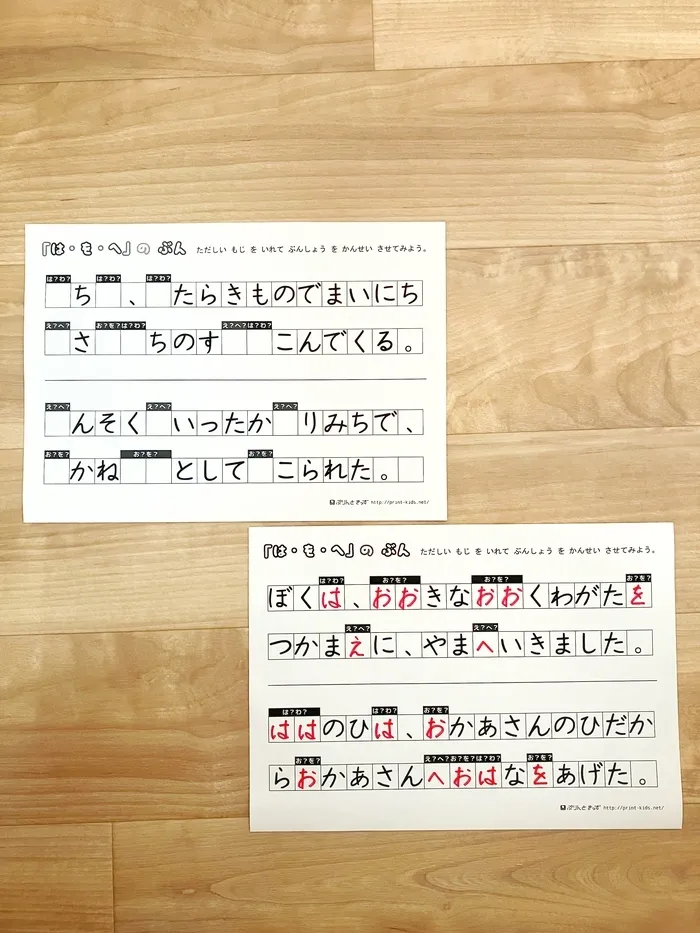 「は・を・へ」の ぶん ただしい もじ を いれて ぶんしょう を かんせい させてみよう。
は?わ? は?わ? は?わ?
ち 、 たらきものでまいにち
え?へ? お?を?は?わ? え?へ?は?わ?
さ ちのす こんでくる。
え?へ? え?へ? え?へ?
んそく いったか りみちで、
お?を? お?を? お?を?
かね として こられた。
ぷりんときっず http://print-kids.net/
「は・を・へ」の ぶん ただしい もじ を いれて ぶんしょう を かんせい させてみよう。
は?わ? お?を? お?を? お?を?
ぼくは、おおきなおおくわがたを
え?へ? え?へ?
つかまえに、やまへいきました。
は?わ? は?わ? お?を?
ははのひは、おかあさんのひだか
お?を? え?へ?お?を?は?わ? お?を?
らおかあさんへおはなをあげた。
ぷりんときっず http://print-kids.net/